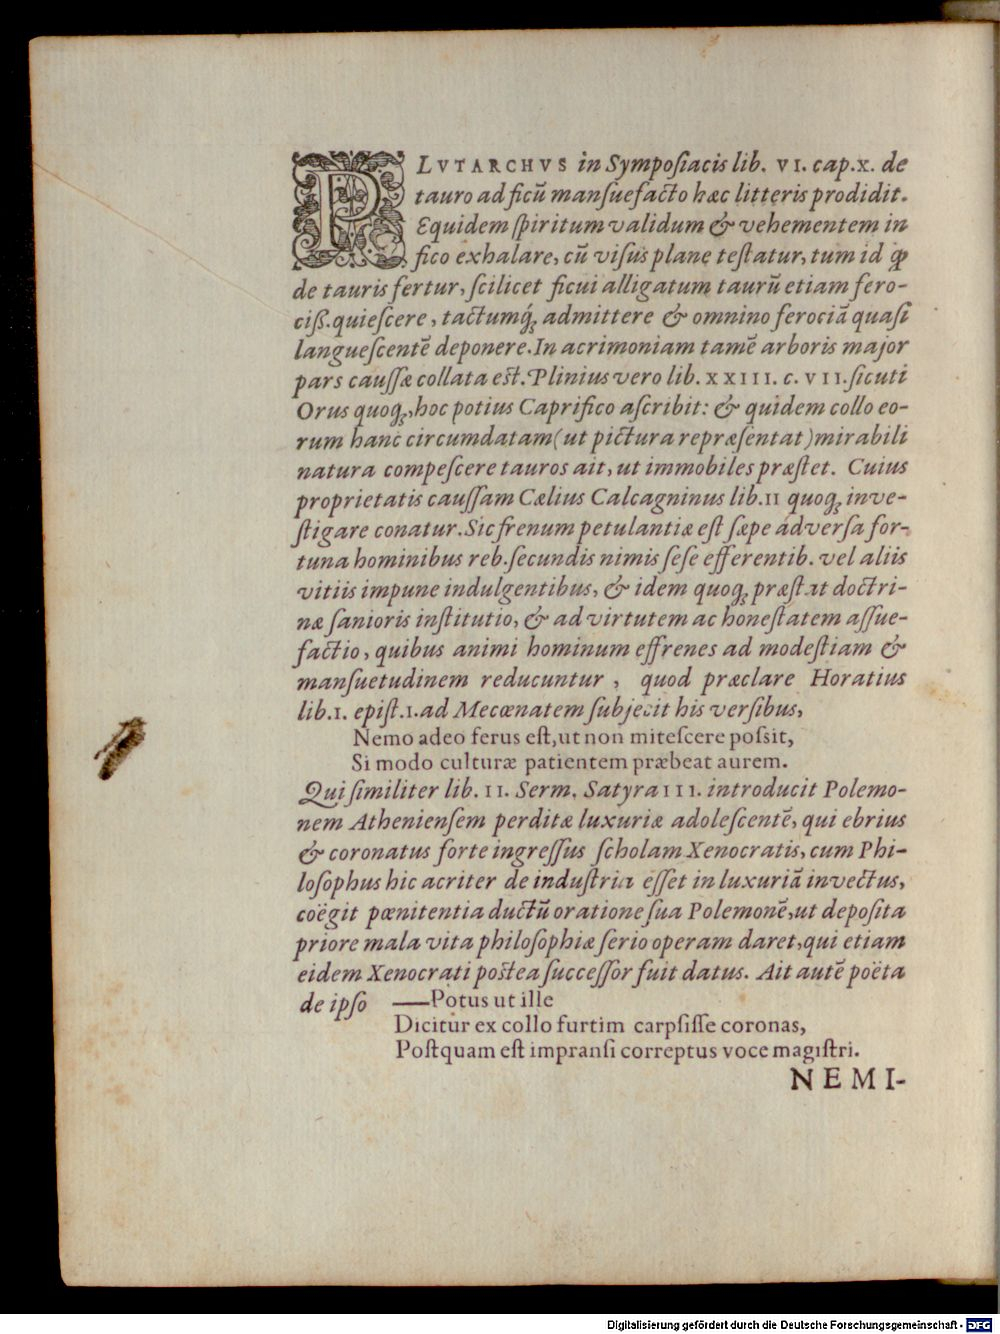 PLVTARCHVS in Sympoſiacis lib. VI. cap.X. de
tauro ad ficũ manſuefacto hæc litteris prodidit.
Equidem ſpiritum validum & vehementem in
fico exhalare, cũ viſus plane teſtatur, tum id ꝙ
de tauris fertur, ſcilicet ficui alligatum taurũ etiam fero-
ciß. quieſcere, tactumq́ꝫ admittere & omnino ferociã quaſi
langueſcentẽ deponere. In acrimoniam tamẽ arboris major
pars cauſſæ collata eſt. Plinius vero lib. XXIII. c. VII. ſicuti
Orus quoqꝫ, hoc potius Caprifico aſcribit: & quidem collo eo-
rum hanc circumdatam (ut pictura repræſentat) mirabili
natura compeſcere tauros ait, ut immobiles præſtet. Cuius
proprietatis cauſſam Cælius Calcagninus lib.II quoqꝫ inve-
ſtigare conatur. Sic frenum petulantiæ eſt ſæpe adverſa for-
tuna hominibus reb. ſecundis nimis ſeſe efferentib. vel aliis
vitiis impune indulgentibus, & idem quoqꝫ præſtat doctri-
næ ſanioris inſtitutio, & ad virtutem ac honeſtatem aſſue-
factio, quibus animi hominum effrenes ad modeſtiam &
manſuetudinem reducuntur, quod præclare Horatius
lib.I. epiſt.I. ad Mecœnatem ſubjecit his verſibus,
Nemo adeo ferus eſt, ut non miteſcere poſsit,
Si modo culturæ patientem præbeat aurem.
Qui ſimiliter lib. II. Serm. Satyra III. introducit Polemo-
nem Athenienſem perditæ luxuriæ adoleſcentẽ, qui ebrius
& coronatus forte ingreſſus ſcholam Xenocratis, cum Phi-
loſophus hic acriter de induſtria eſſet in luxuriã invectus,
coëgit pœnitentia ductũ oratione ſua Polemonẽ, ut depoſita
priore mala vita philoſophiæ ſerio operam daret, qui etiam
eidem Xenocrati poſtea ſucceſſor fuit datus. Ait autẽ poëta
de ipſo —Potus ut ille
Dicitur ex collo furtim carpſiſſe coronas,
Poſtquam eſt impranſi correptus voce magiſtri.
NEMI-
Digitalisierung gefördert durch die Deutsche Forschungsgemeinschaft - DFG